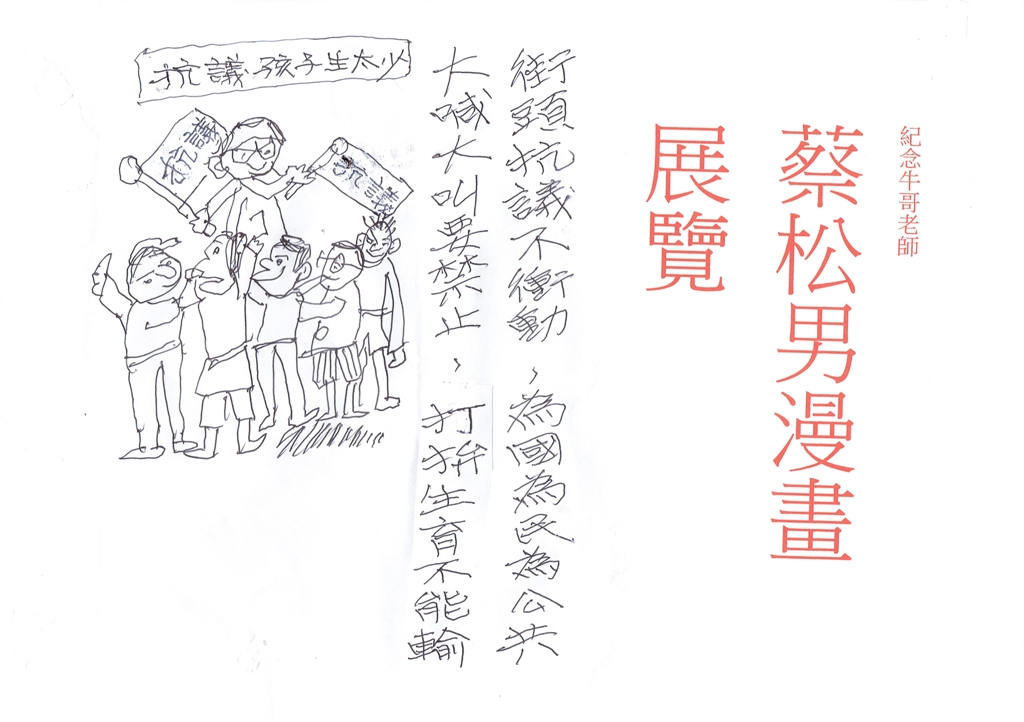 紀念牛哥老師
蔡松男漫畫
展覽
街頭抗議不衝動，為國為民為公共
大喊大叫要禁止，打拚生育不能輸
抗議孩子生太少
抗議
抗議